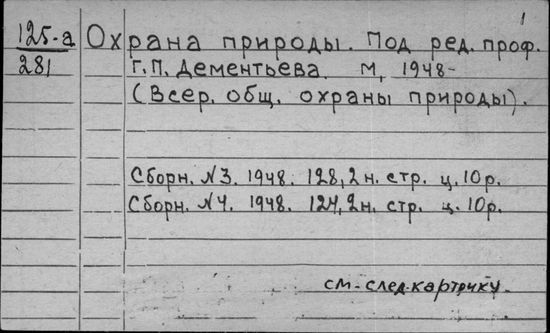 1
125-а Охрана природы. Под ред. проф.
281 Г.П. Дементьева. М, 1948-
(Всер. общ. охраны природы).
Сборн. №3. 1948. 128, 2н. стр. ц. 10р.
Сборн. №4. 1948. 124, 2н. стр. ц. 10р.
см. след. карточку.